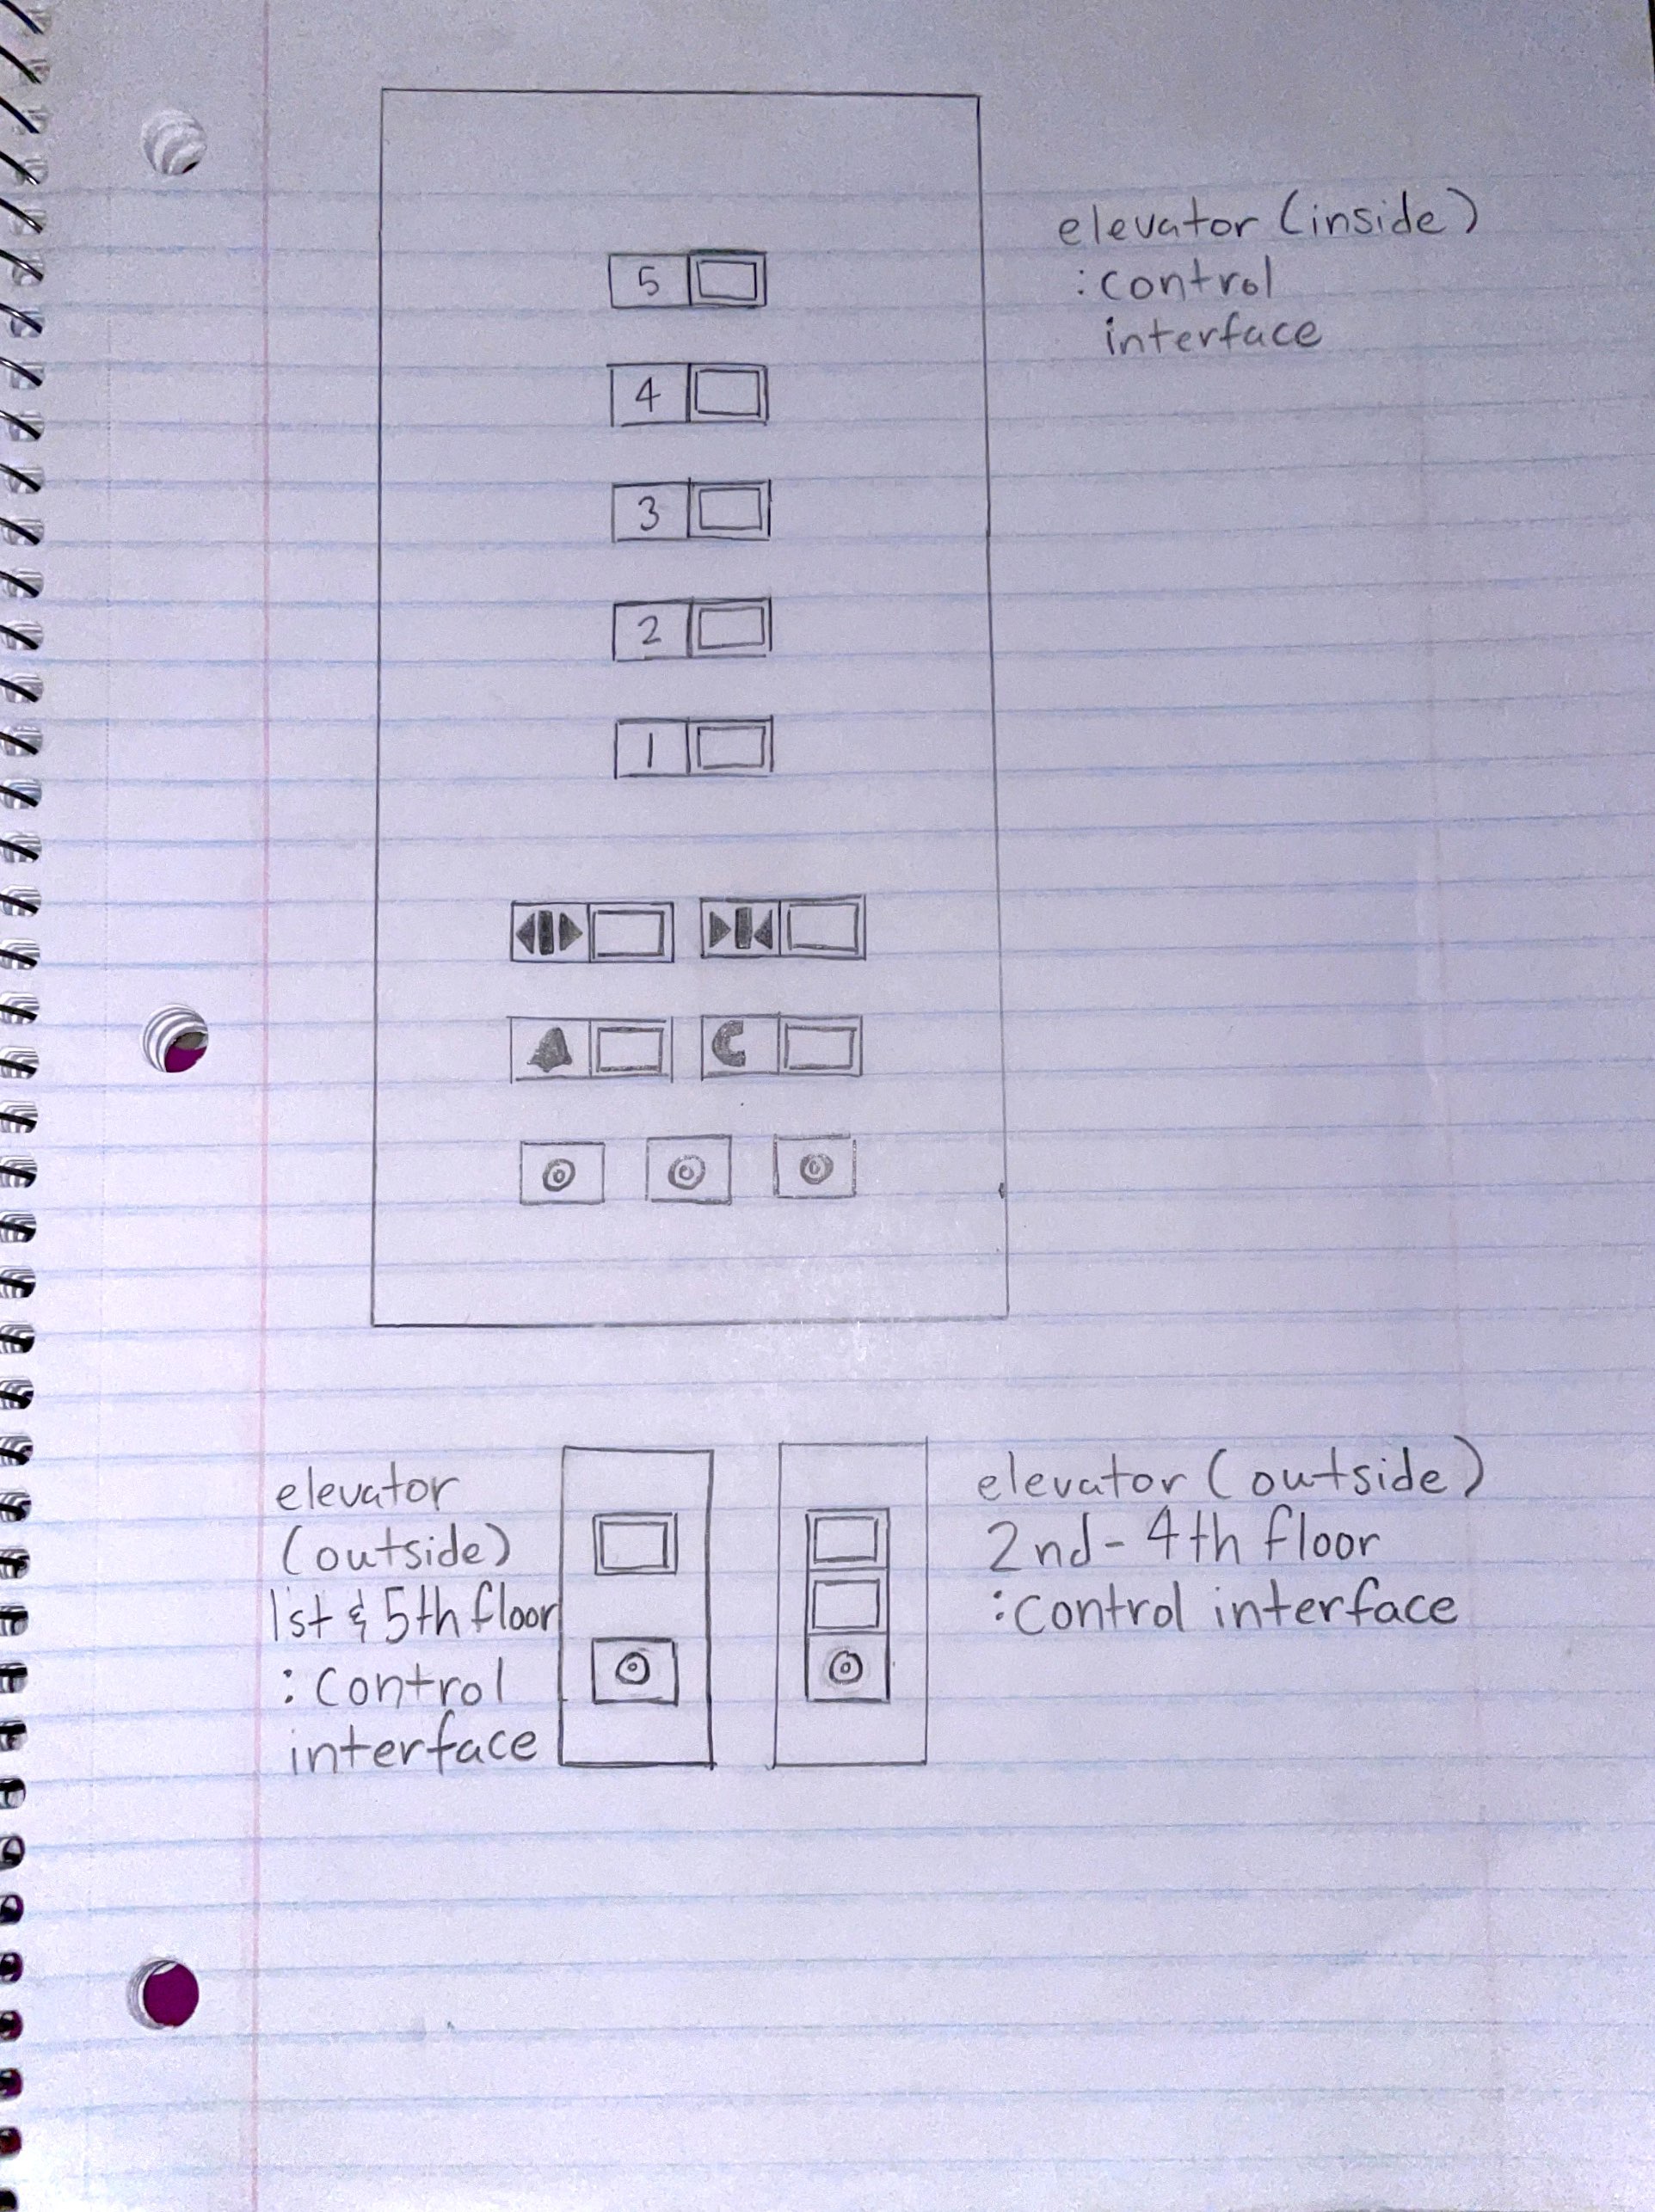 elevator (inside)
: control
interface
5
4
3
2
1
elevator
(outside)
1st & 5th floor
: control
interface
elevator (outside)
2nd - 4th floor
: control interface